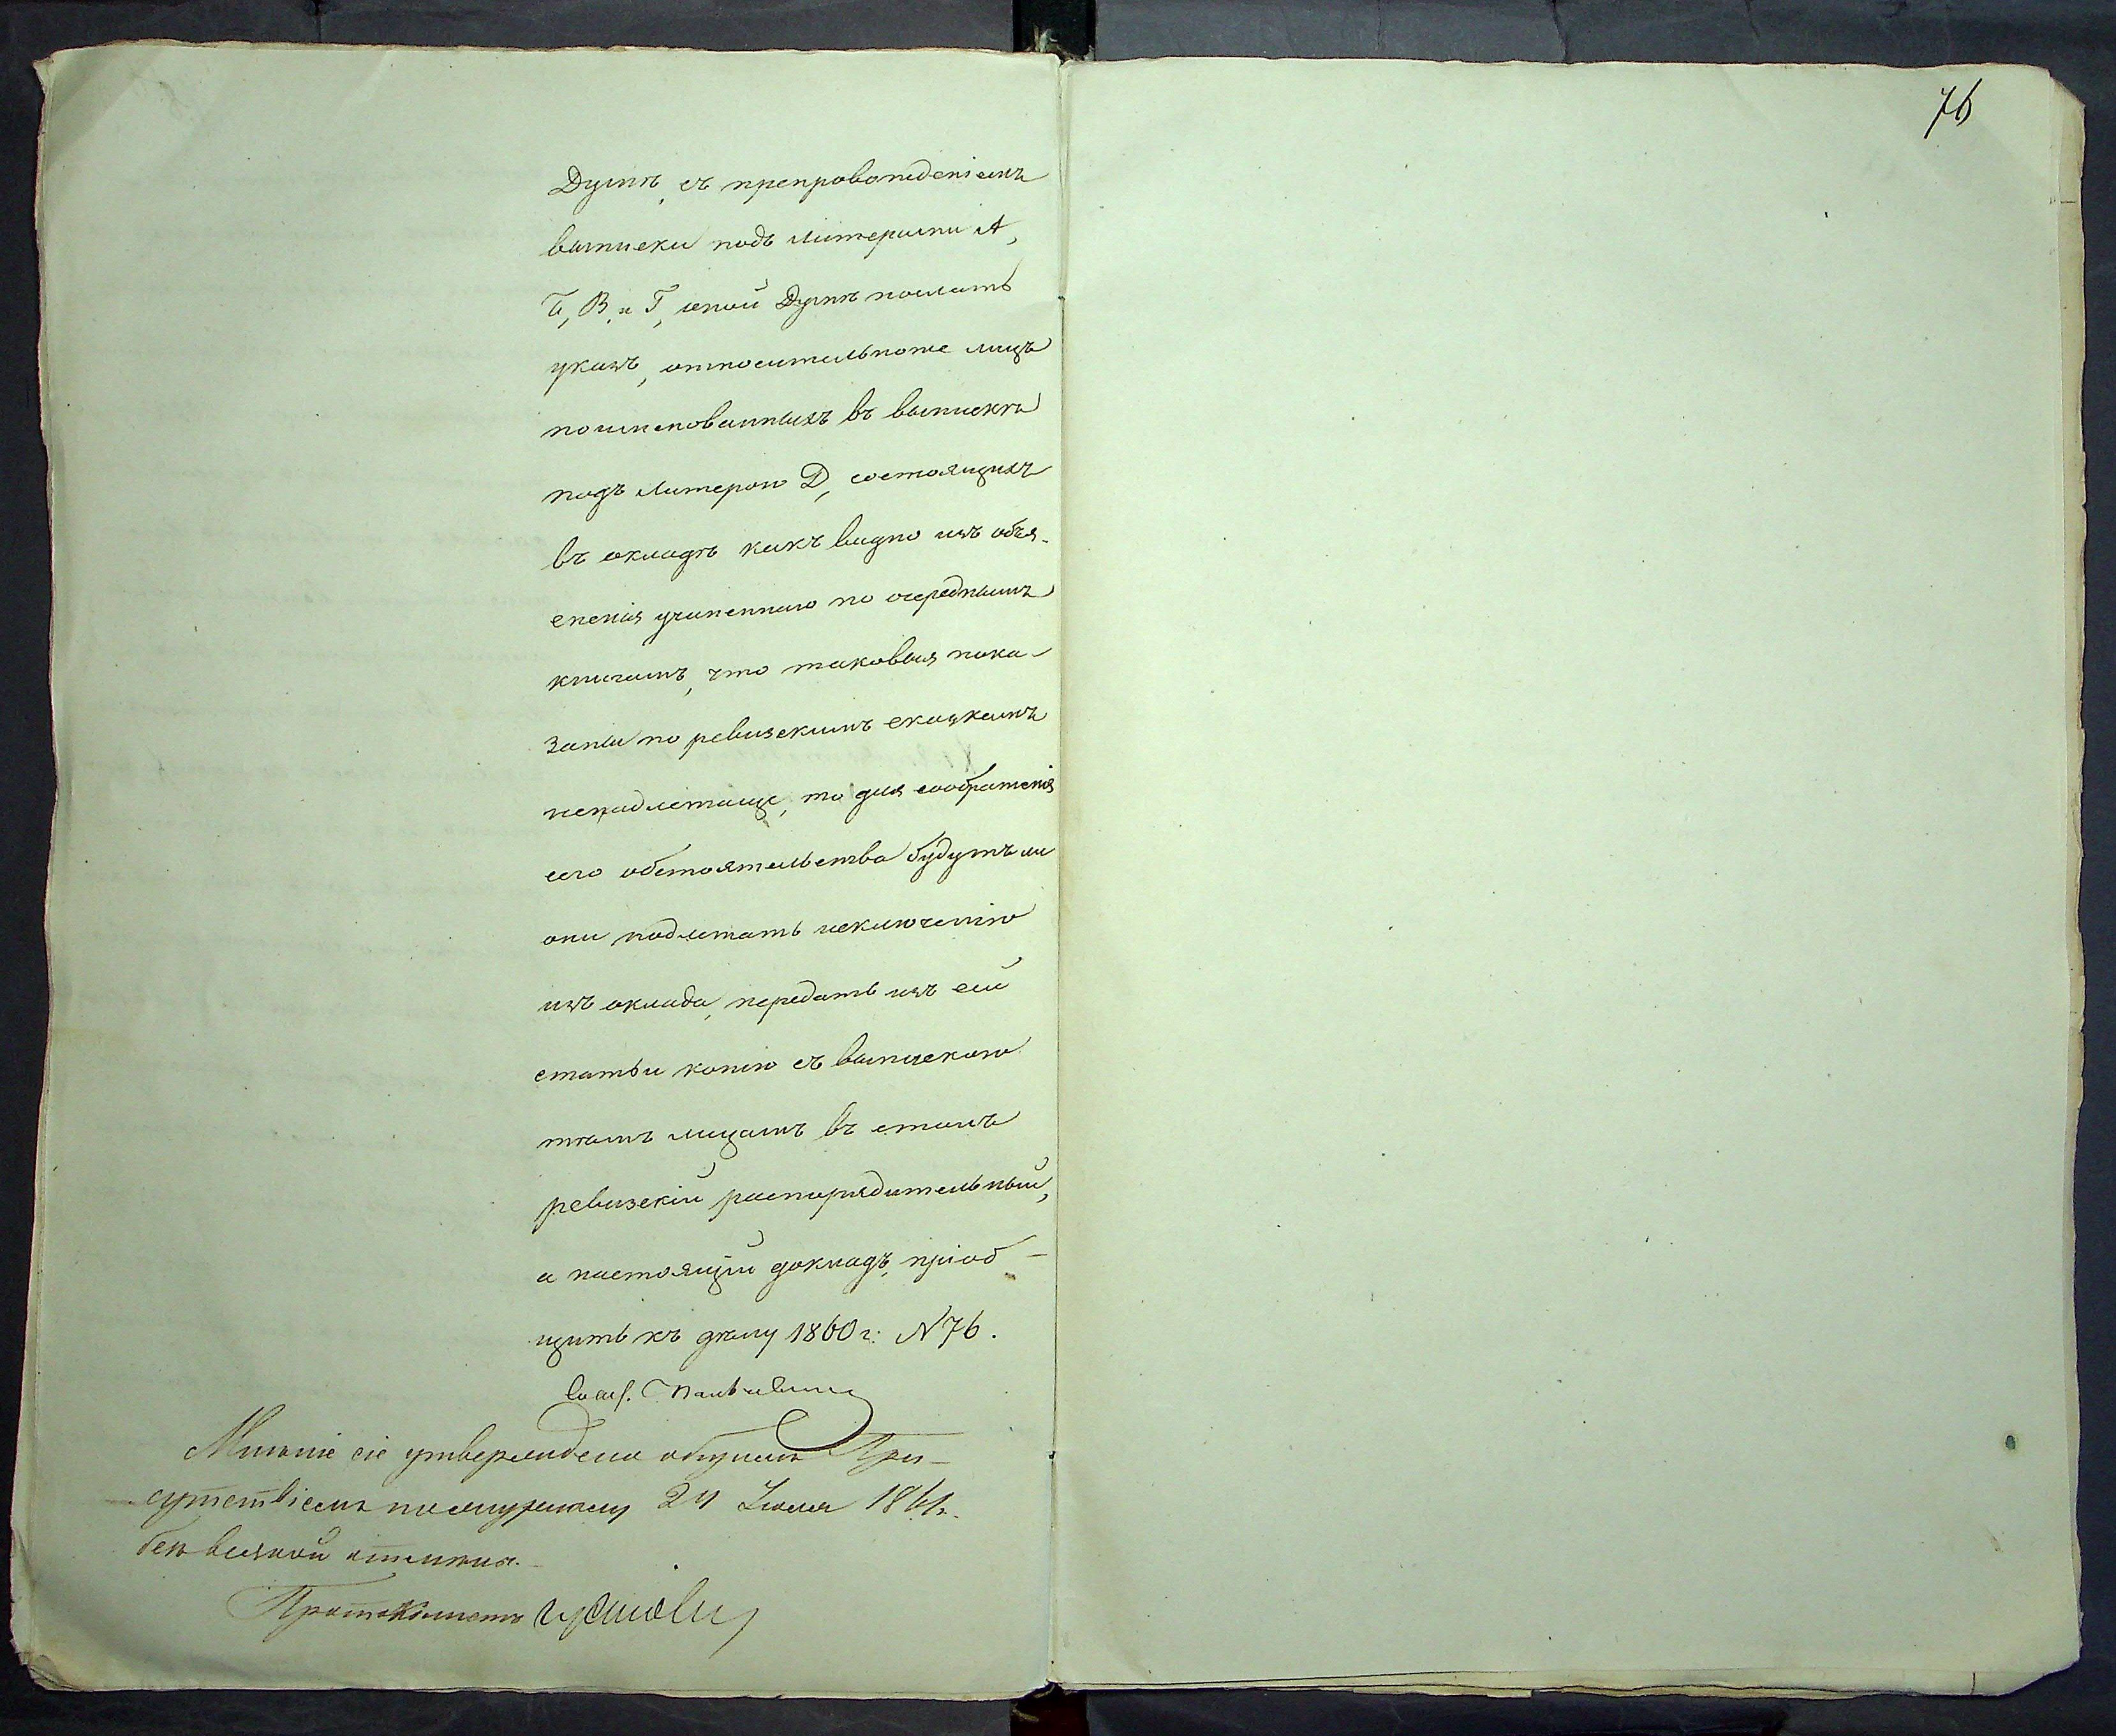 76
Думѣ, съ препровожденіемъ
выписки подъ литерами А,
Б, В, и Г, оной Думѣ послать
указъ, относительноже лицъ
поименованныхъ въ выпискѣ
подъ литерою Д, состоящихъ
въ окладѣ какъ видно изъ объя-
сненія учиненнаго по очереднымъ
книгамъ, что таковыя пока-
заны по ревизскимъ сказкамъ
ненадлежаще, то для соображенія
сего обстоятельства будутъ ли
они подлежать исключенію
изъ оклада, передать изъ сей
статьи копію съ выпискою
тѣмъ лицамъ въ столъ
ревизскій распорядительный,
а настоящій докладъ, пріоб-
щить къ дѣлу 1860 г: N 76.
Мнѣніе сіе утверждено общимъ При-
сутствіемъ по журналу 24 Іюля 1861 г.
безъ всякой отмѣны.
Протоколистъ